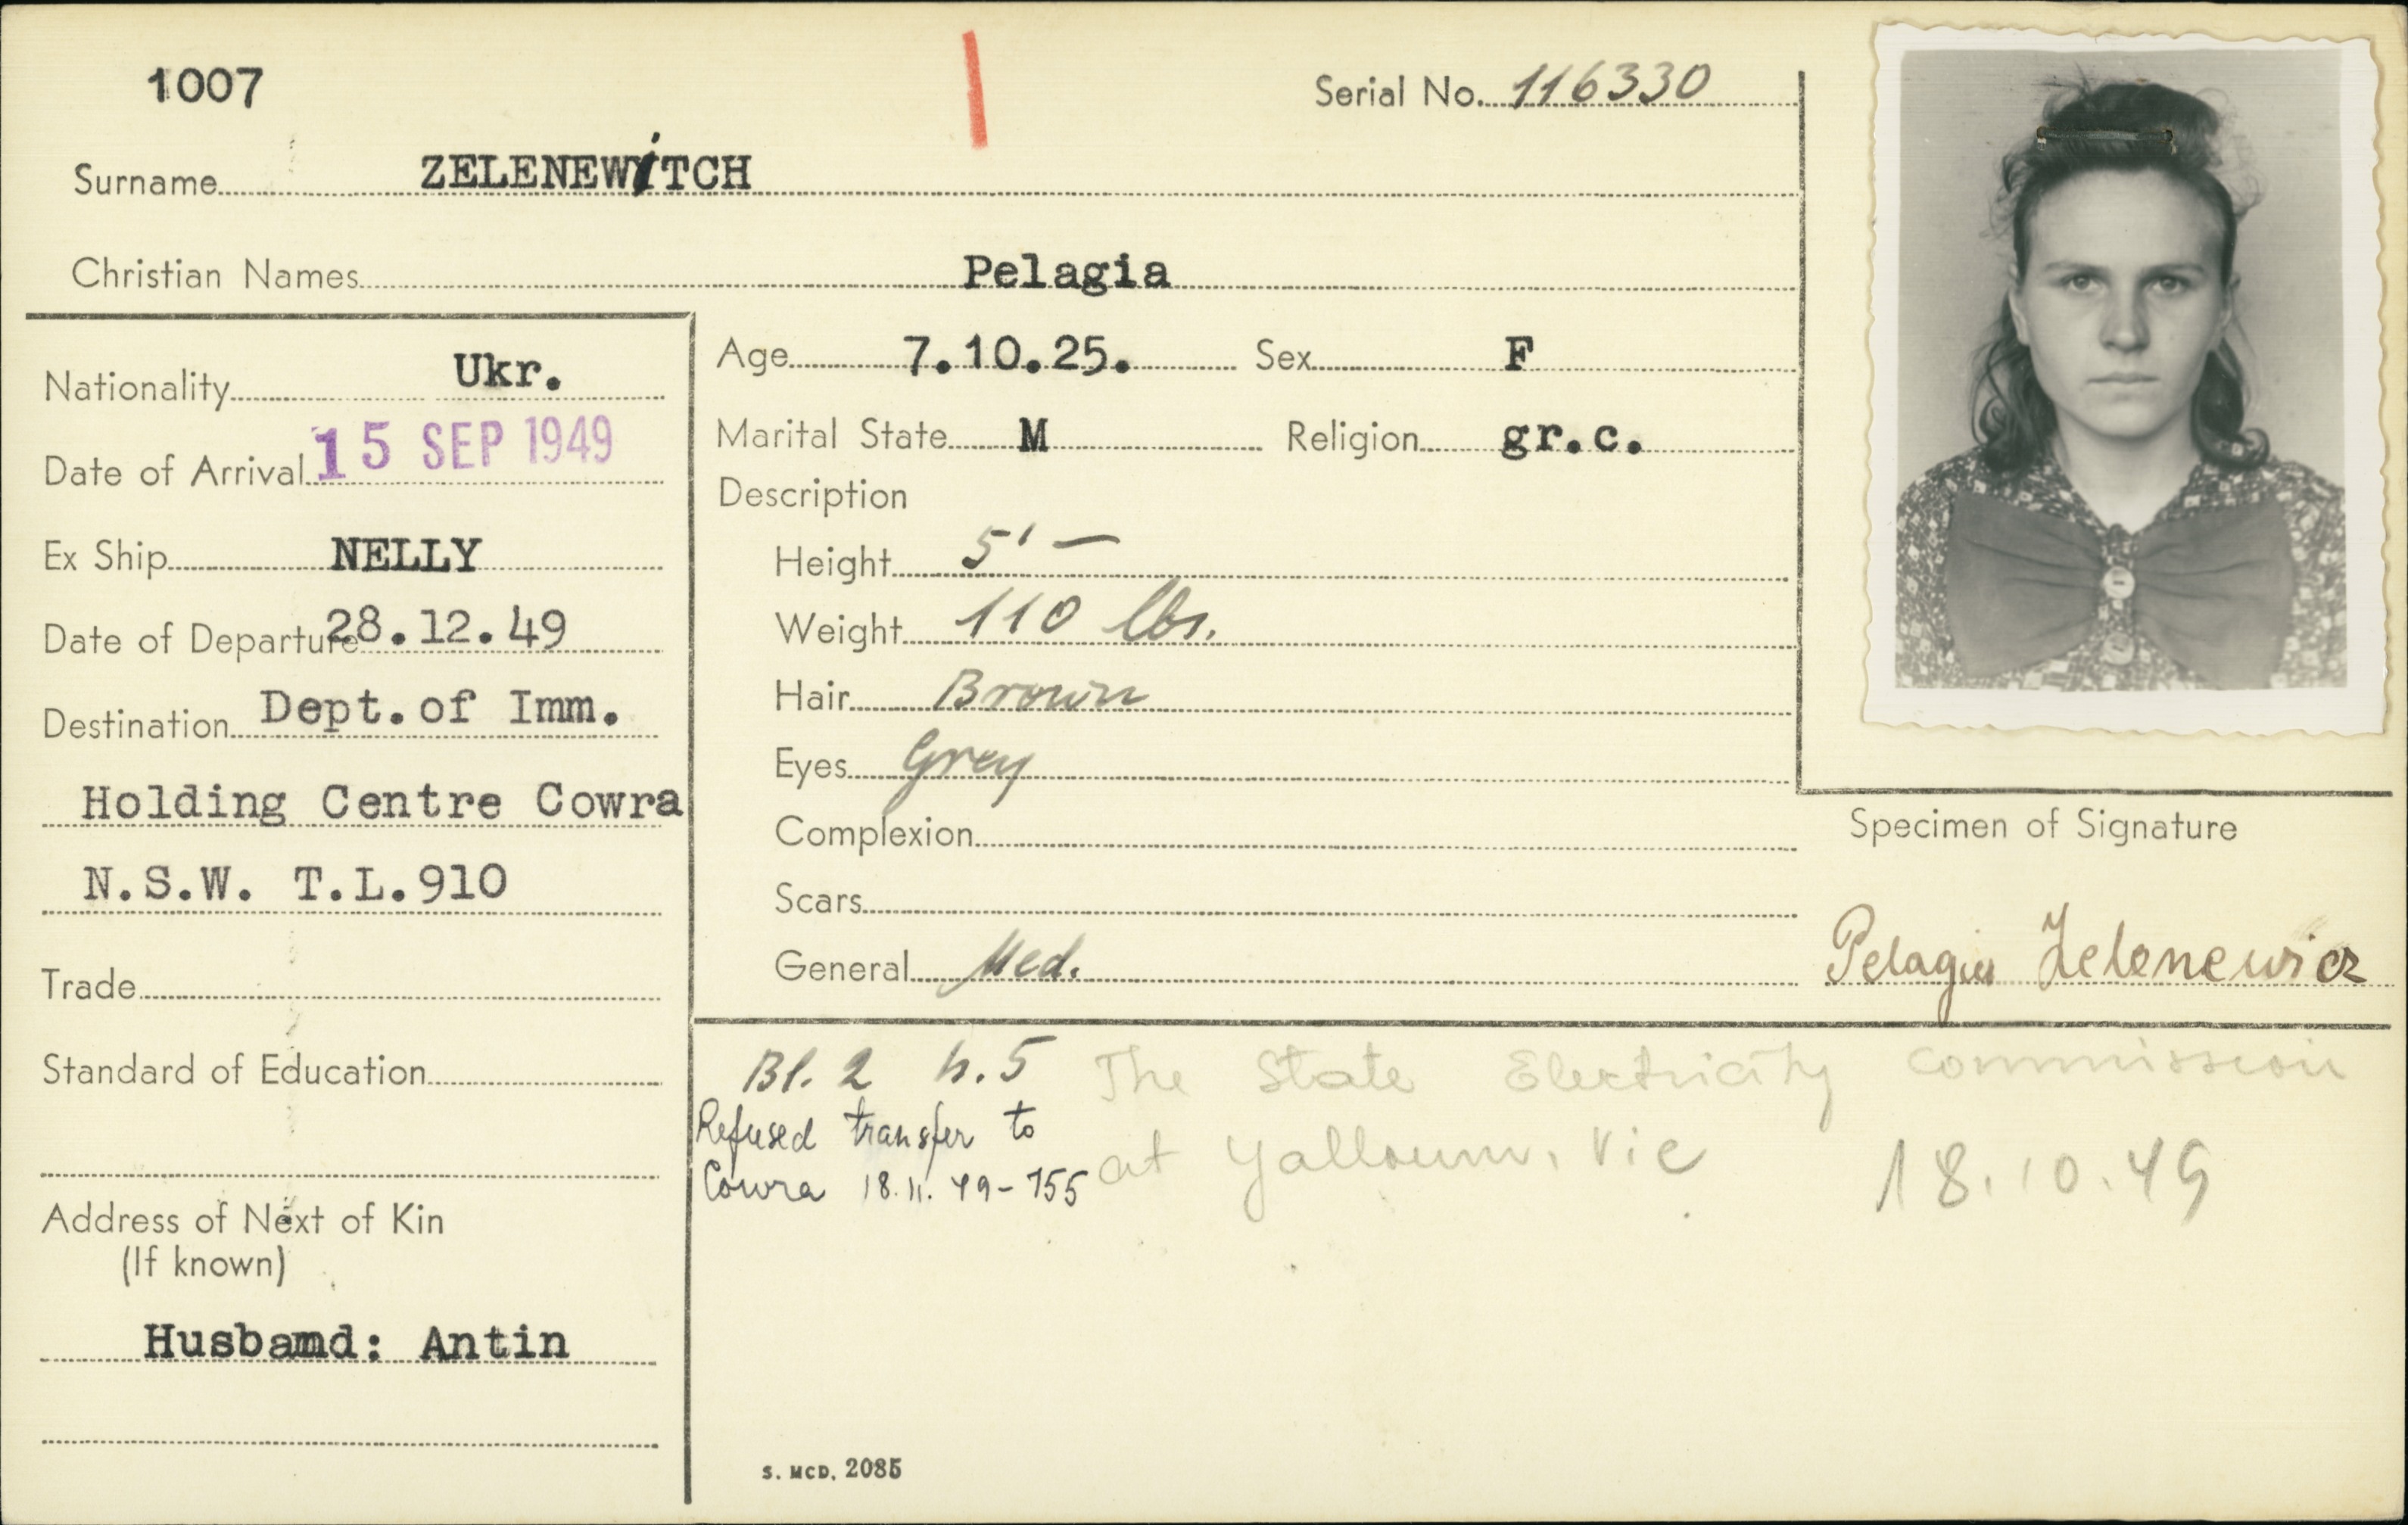 1007
Serial No. 116330
Surname ZELENEWiTCH
Christian Names Pelagia
Nationality Ukr.
Date of Arrival 15 SEP 1949
Ex Ship NELLY
Date of Departure 28.12.49
Destination Dept.of Imm.
Holding Centre Cowra
N.S.W. T.L.910
Trade
Standard of Education
Address of Next of Kin
(If known)
Husband: Antin
Age 7.10.25. Sex F
Marital State M Religion gr.c.
Description
Height 5' —
Weight 110 lbs.
Hair Brown
Eyes Grey
Complexion
Scars
General Med.
Specimen of Signature
Pelagia Zelenewicz
Bl. 2 h.5
Refused transfer to
Cowra 18.11.49-755
The State Electricity Commission
at Yallourn, Vic 18.10.49
S. MCD. 2085